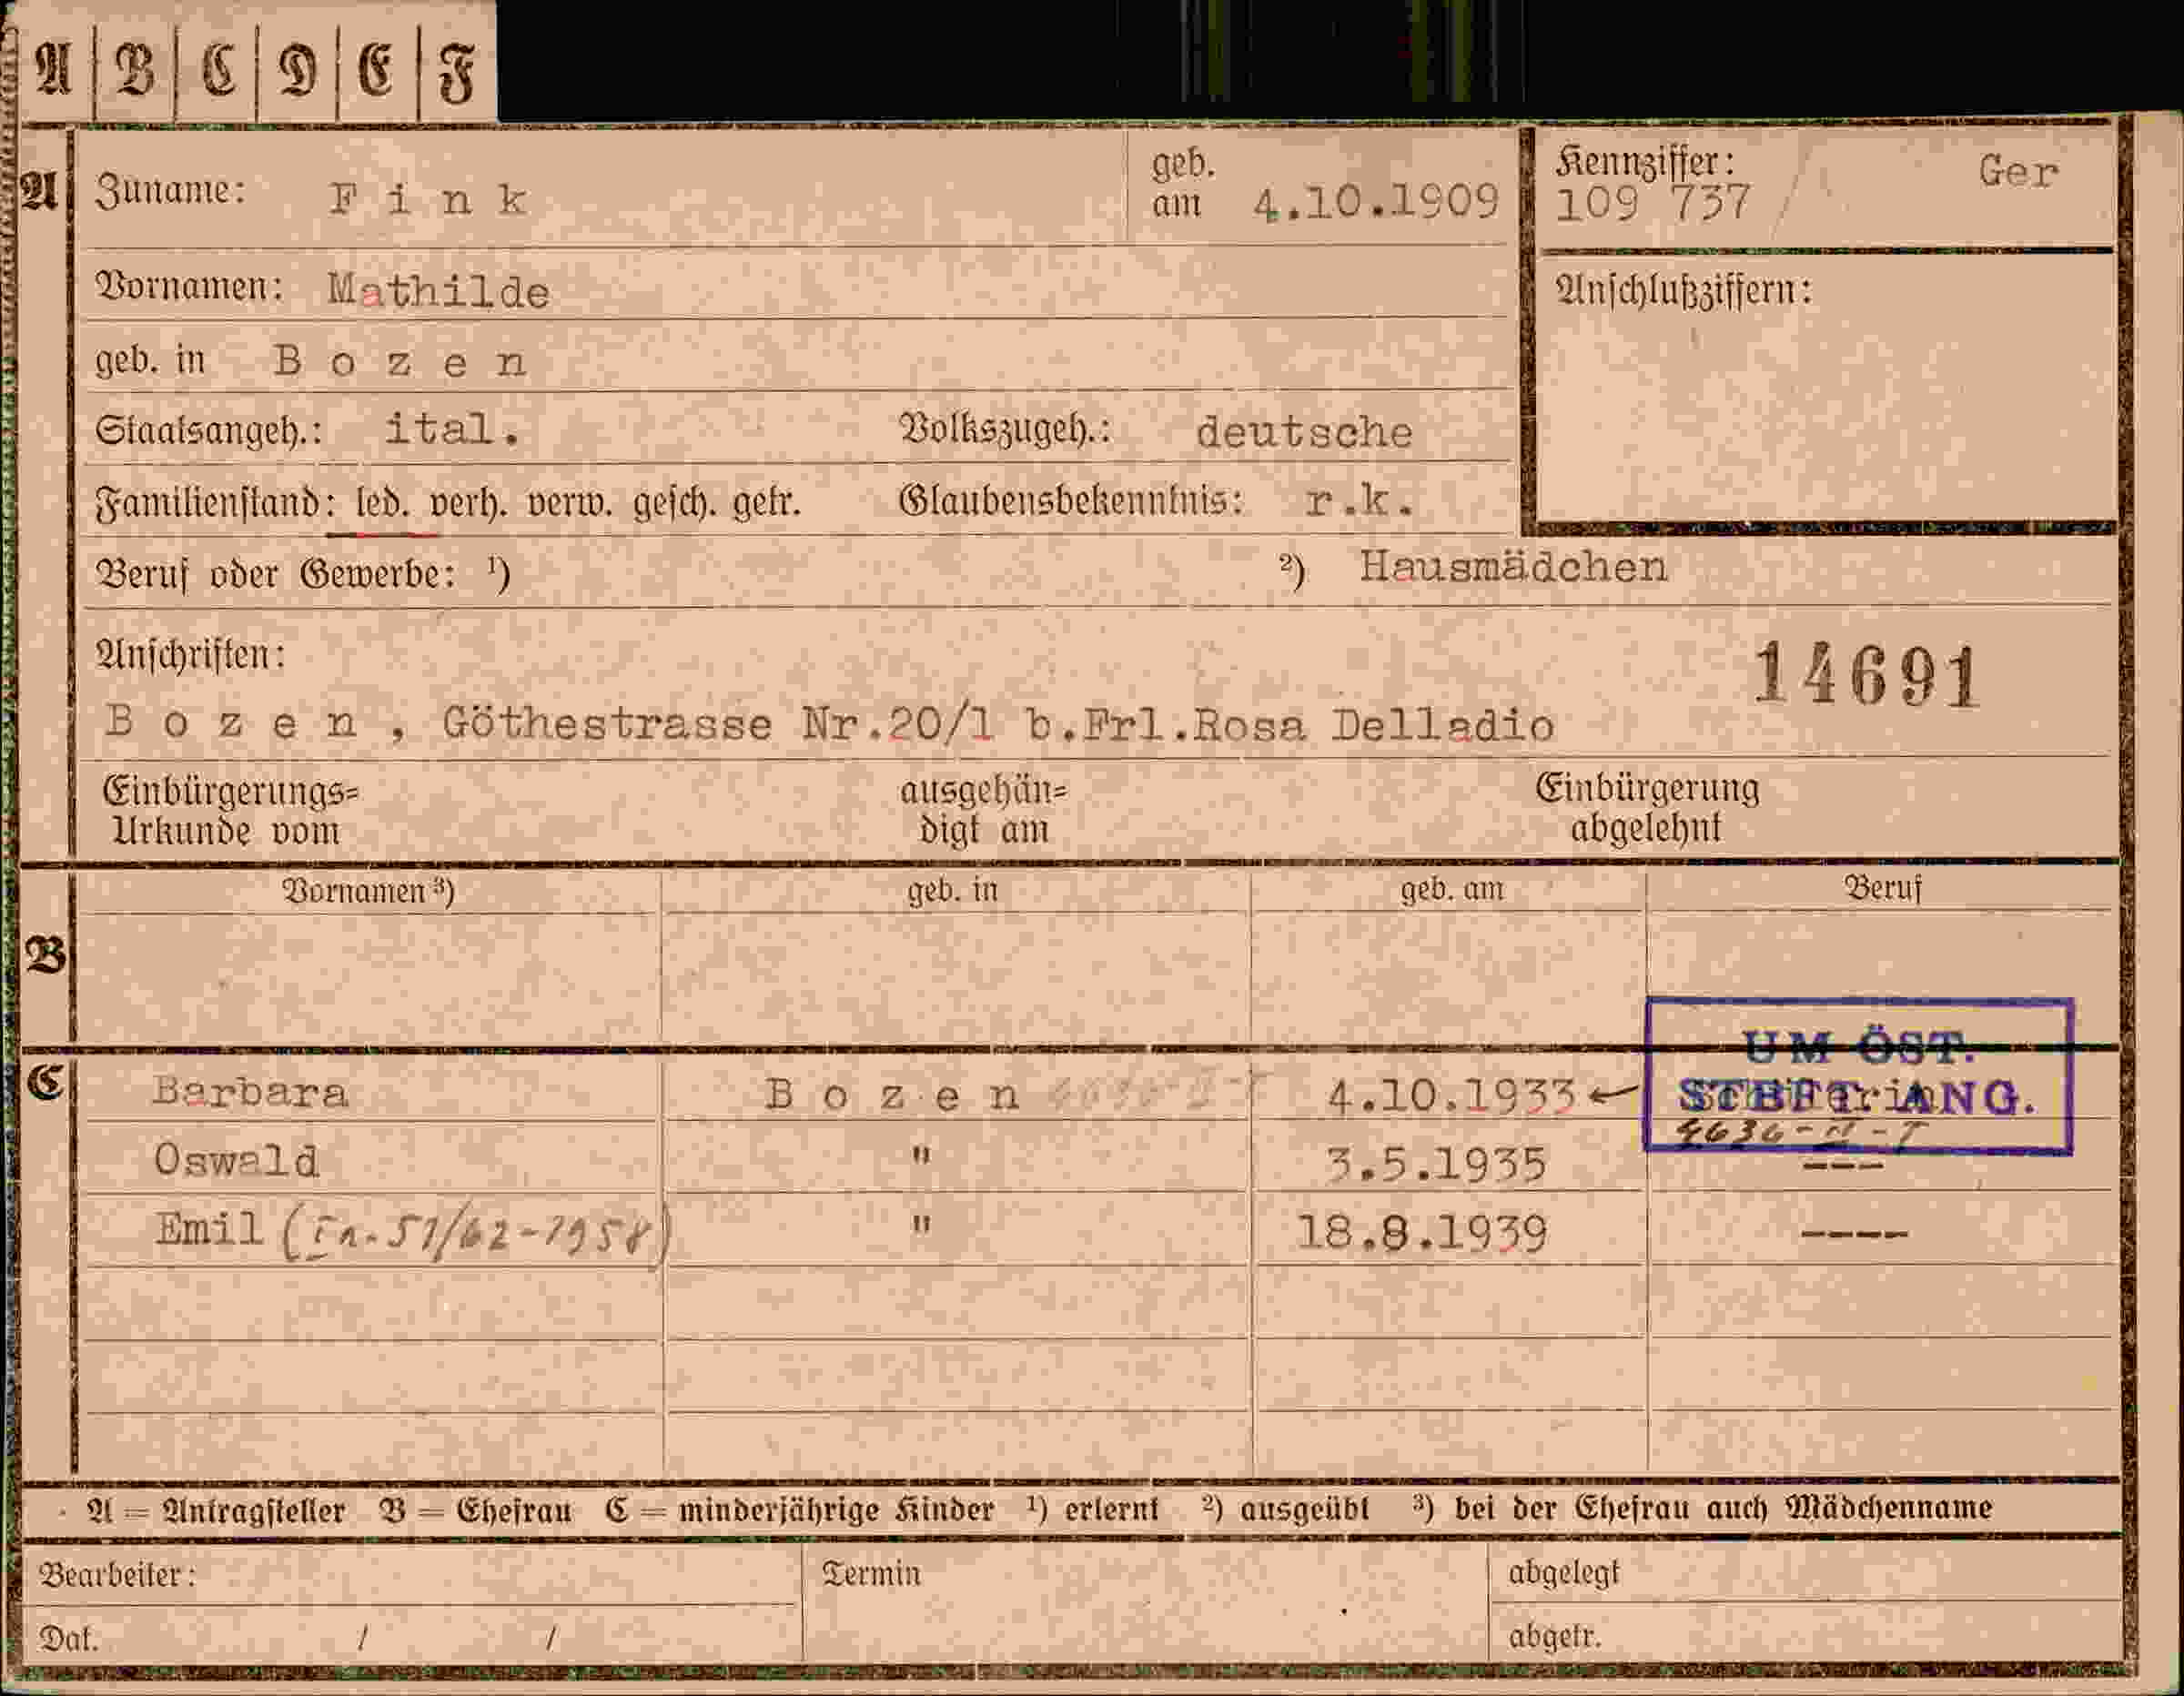 A | B | C | D | E | F
A Zuname: F i n k geb. am 4.10.1909
Kennziffer: Ger
109 737 /
Vornamen: Mathilde
Anschlußziffern:
geb. in B o z e n
Staatsangeh.: ital. Volkszugeh.: deutsche
Familienstand: led. verh. verw. gesch. getr. Glaubensbekenntnis: r.k.
Beruf oder Gewerbe: ¹) ²) Hausmädchen
Anschriften:
14691
B o z e n , Göthestrasse Nr.20/1 b.Frl.Rosa Delladio
Einbürgerungs= Urkunde vom ausgehän= digt am Einbürgerung abgelehnt
Vornamen ³) geb. in geb. am Beruf
B
UM ÖST.
C Barbara B o z e n 4.10.1933 STBFT ANG.
4636-II-T
Oswald " 3.5.1935 ---
Emil (En.51/62-1958) " 18.8.1939 ----
A = Antragsteller B = Ehefrau C = minderjährige Kinder ¹) erlernt ²) ausgeübt ³) bei der Ehefrau auch Mädchenname
Bearbeiter: Termin abgelegt
Dat. / / abgetr.